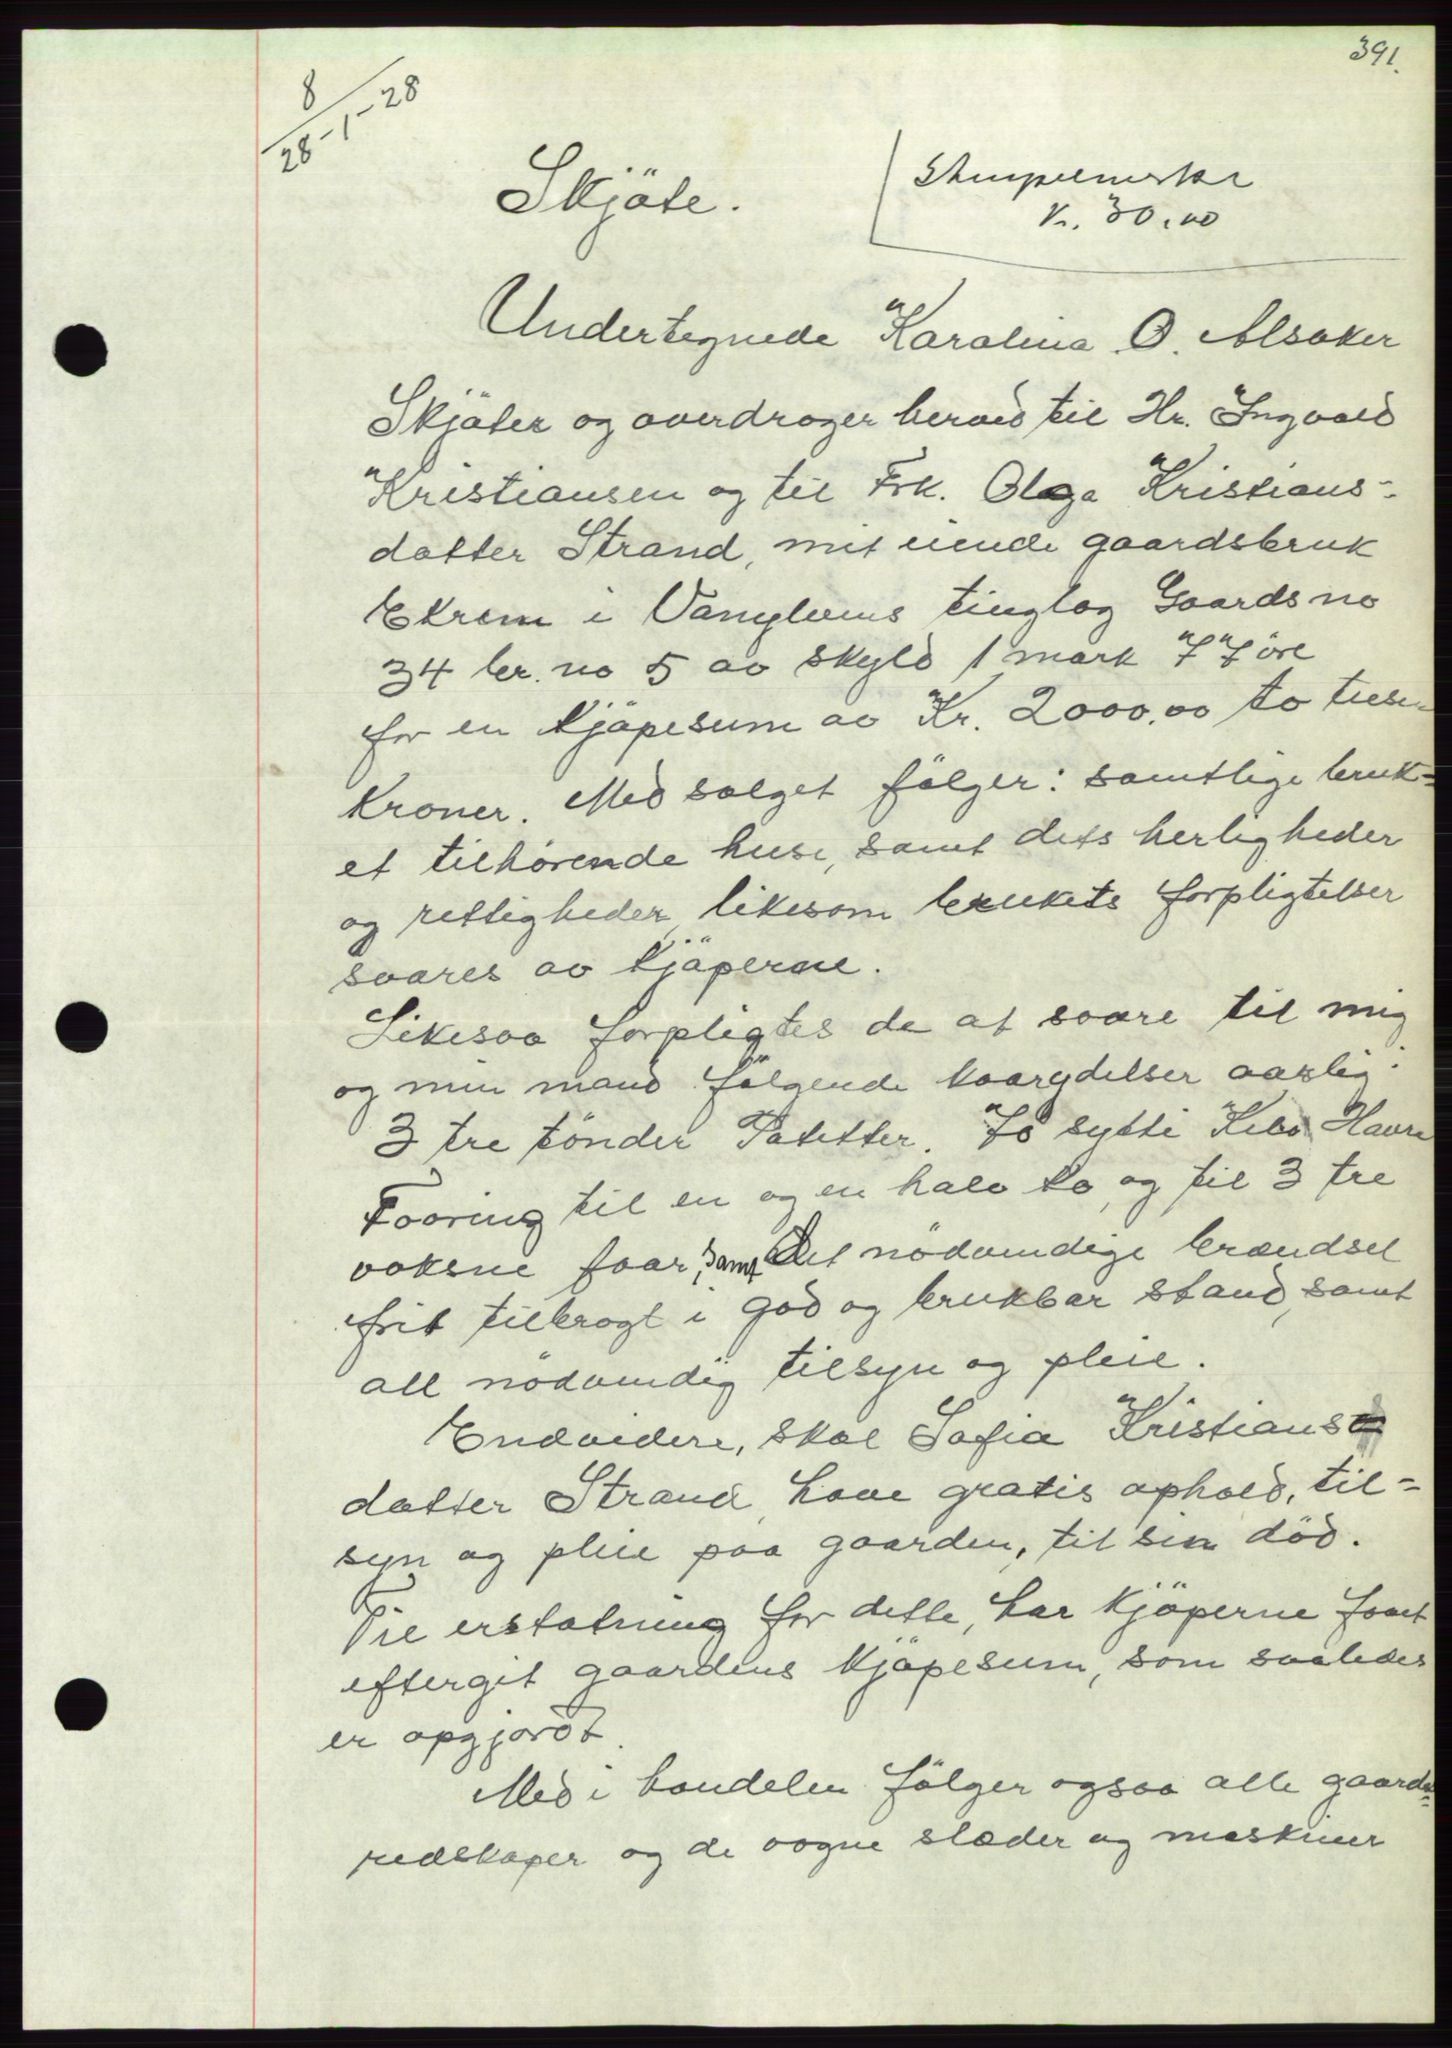 391.
8
28-1-28
Skjöte.
Stempelmerke
Kr. 30.00
Undertegnede Karolina O. Alsaker
Skjöter og overdrager herved til Hr. Ingvald
Kristiansen og til Frk. Olga Kristians-
datter Strand, mit eiende gaardsbruk
Ekrem i Vanylvens tinglag Gaards no
34 br. no 5 av skyld 1 mark 77 öre
for en kjöpesum av Kr. 2000.00 to tusen
Kroner. Med salget fölger: samtlige bruk-
et tilhörende huse, samt dets herligheder
og rettigheder, likesom brukets forpligtelser
svares av kjöperne.
Likesaa forpligtes de at svare til mig
og min mand fölgende kaarydelser aarlig:
3 tre tönder Poteter. 70 sytti Kilo Havre
Foring til en og en halv ko, og til 3 tre
voksne faar, samt det nödvendige brændsel
frit tilbragt i god og brukbar stand, samt
all nödvendig tilsyn og pleie.
Endvidere, skal Sofia Kristians-
datter Strand, have gratis ophold, til-
syn og pleie paa gaarden, til sin död.
Til erstatning for dette, har kjöperne faaet
eftergit gaardens kjöpesum, som saaledes
er opgjordt.
Med i handelen fölger ogsaa alle gaards-
redskaper og de vogne slæder og maskiner